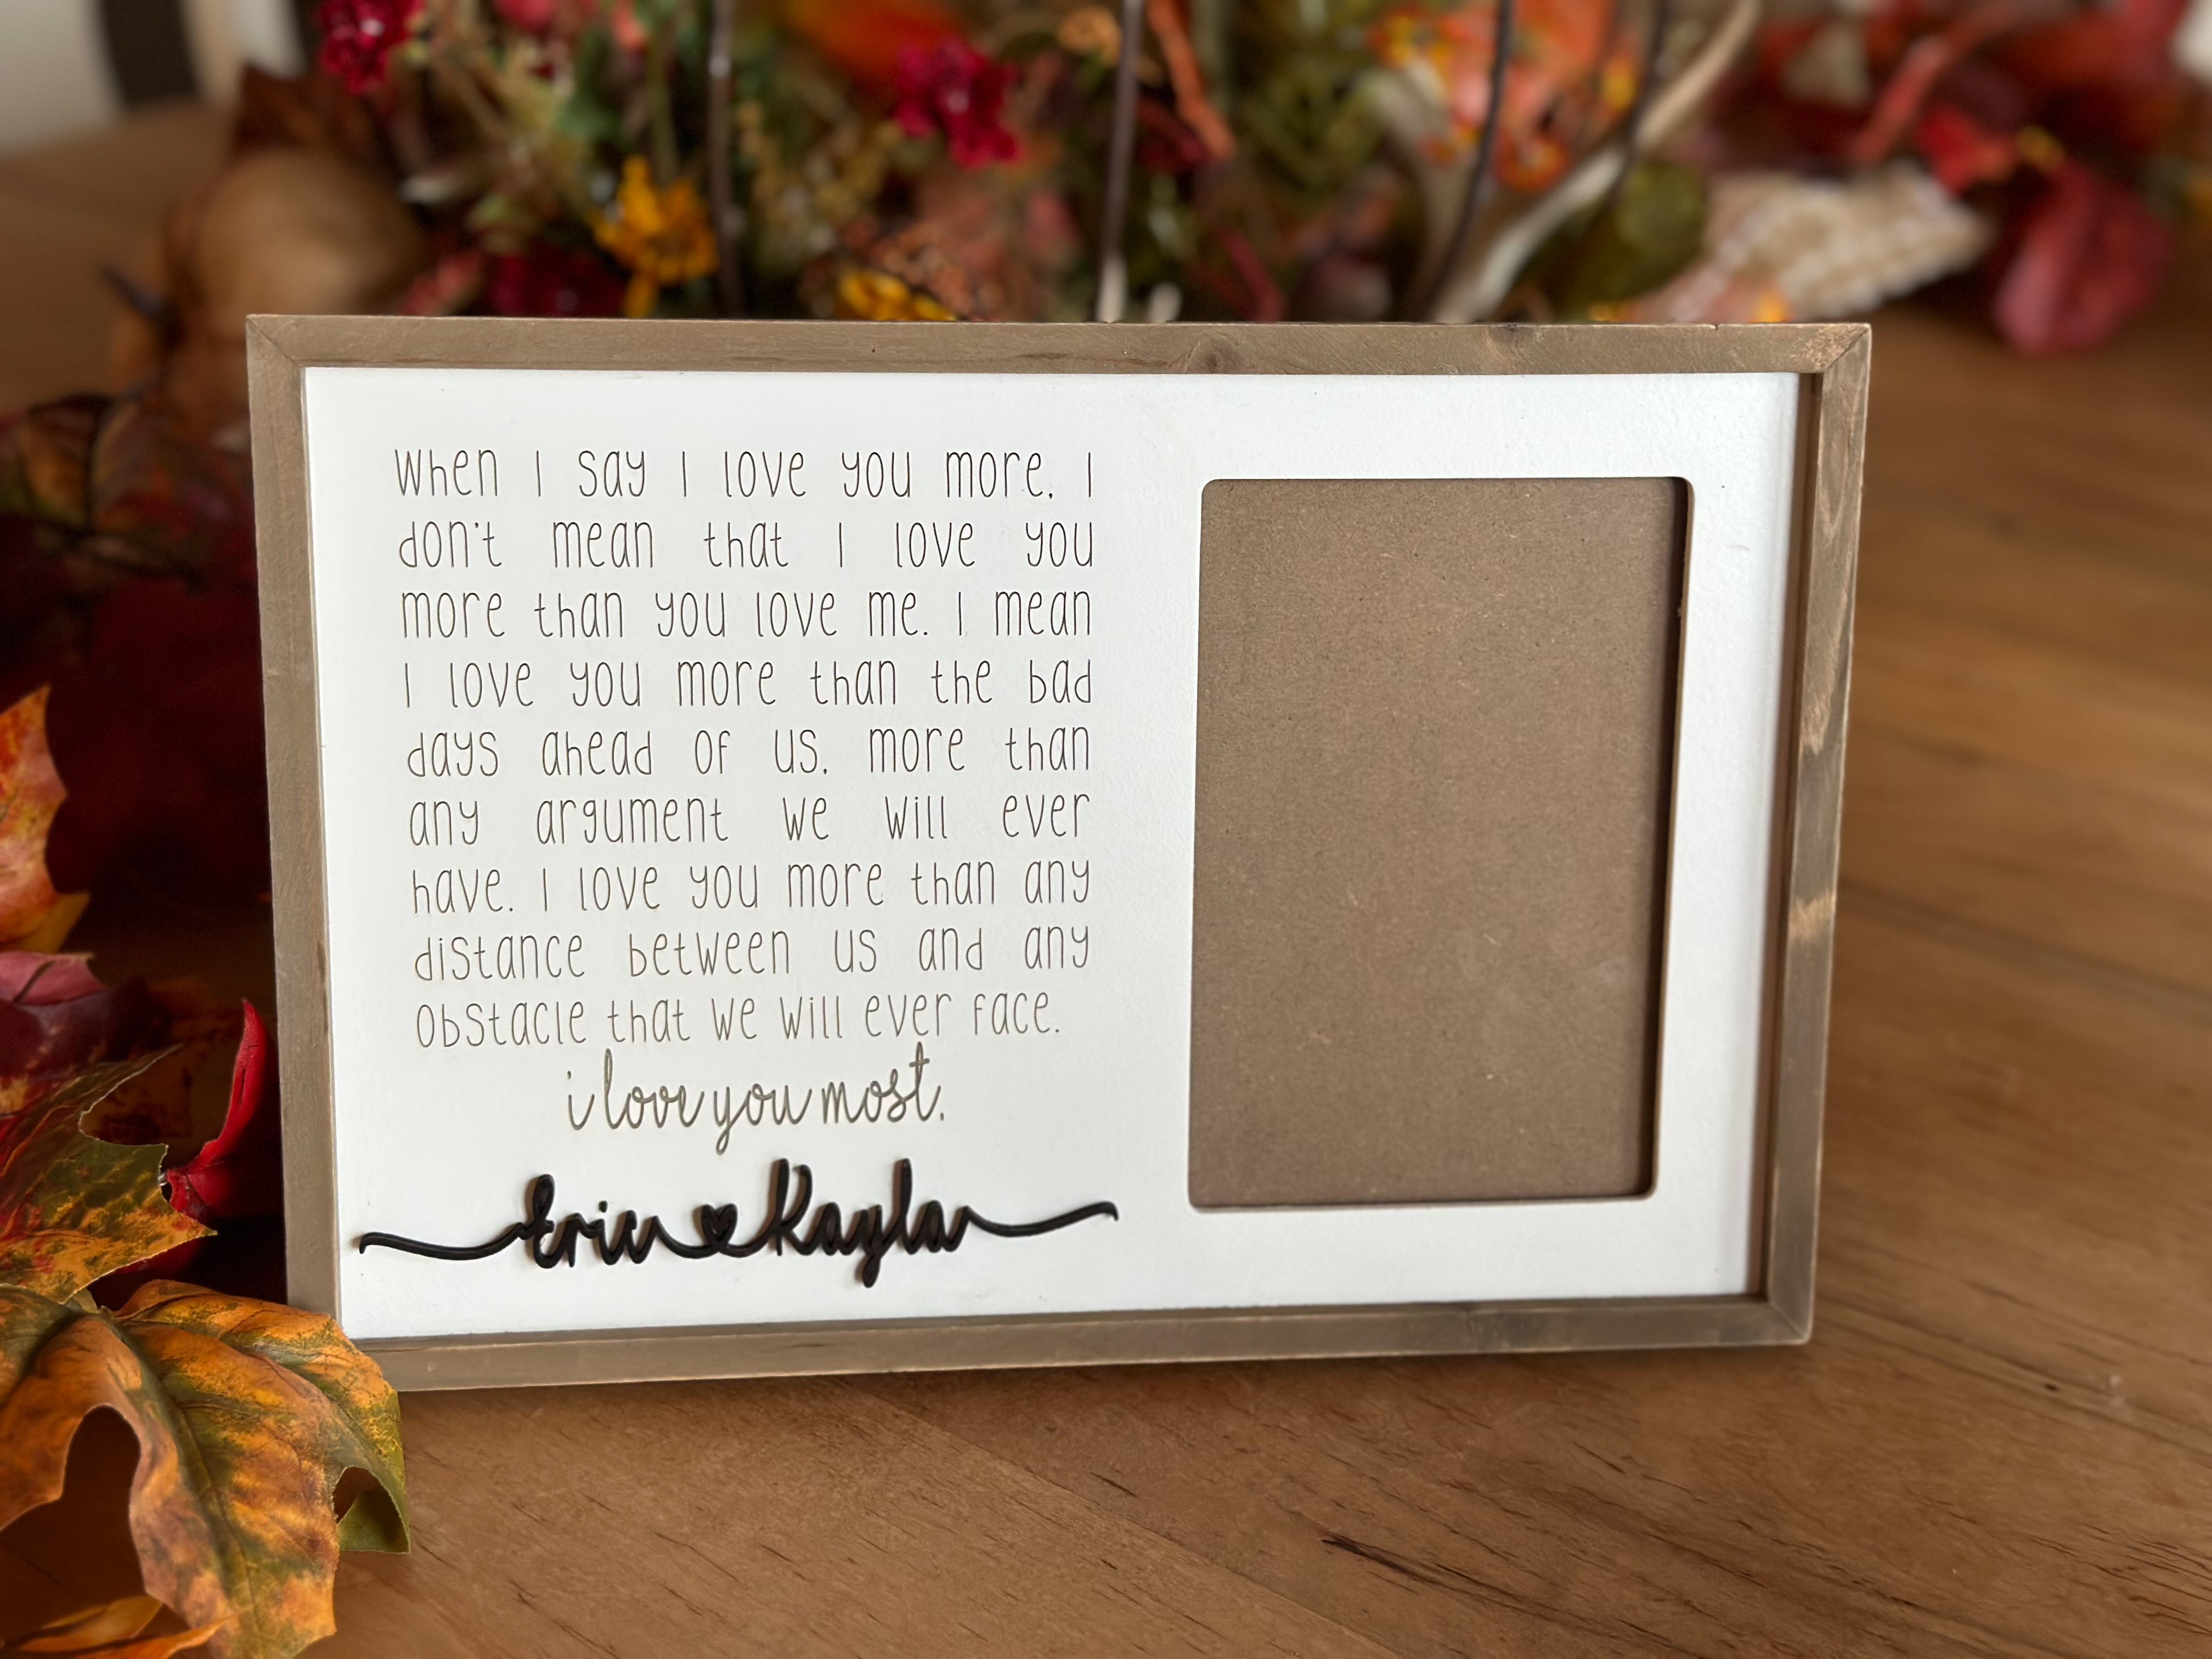 When I say I love you more, I
don't mean that I love you
more than you love me. I mean
I love you more than the bad
days ahead of us, more than
any argument we will ever
have. I love you more than any
distance between us and any
obstacle that we will ever face.
i love you most.
Eric Kayla